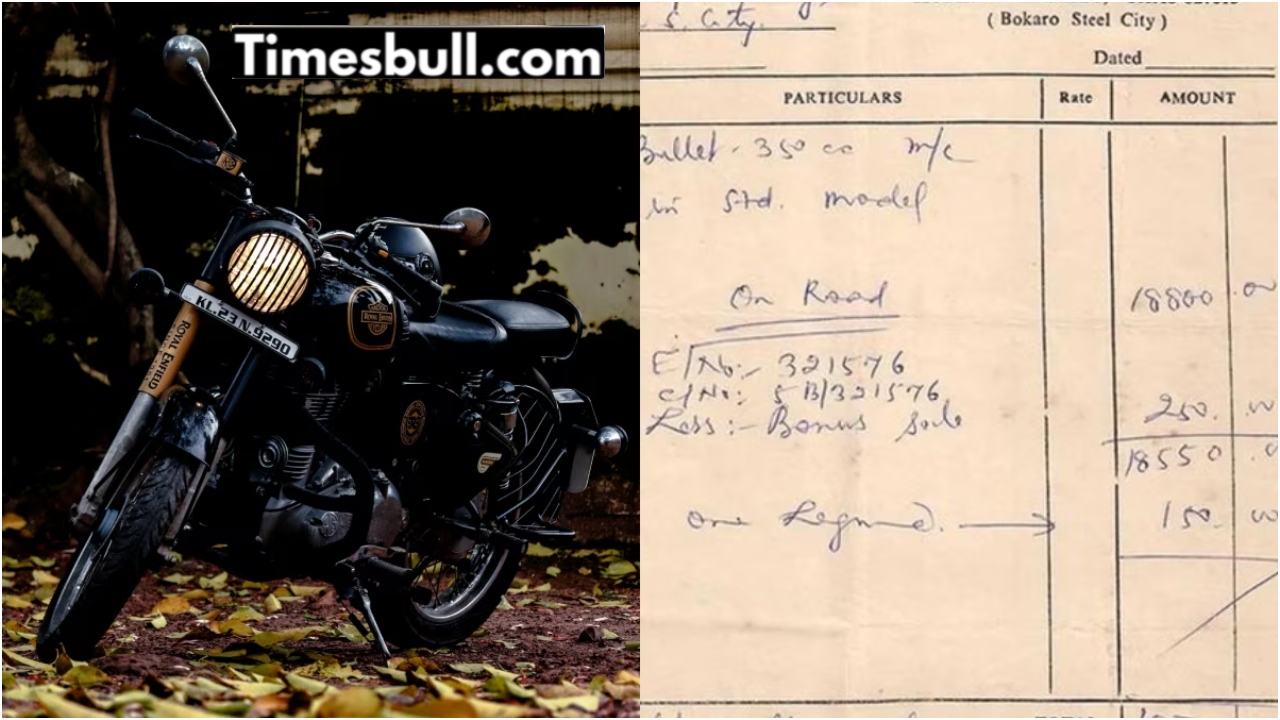 Timesbull.com
KL.23 N.9290
ROYAL ENFIELD
S. City.
( Bokaro Steel City )
Dated
PARTICULARS Rate AMOUNT
Bullet - 350 cc m/c
in Std. model
On Road 18800 .00
E/No:- 321576
C/No: 5B/321576
Less :- Bonus sale 250. 00
18550 .0
One 150. 00